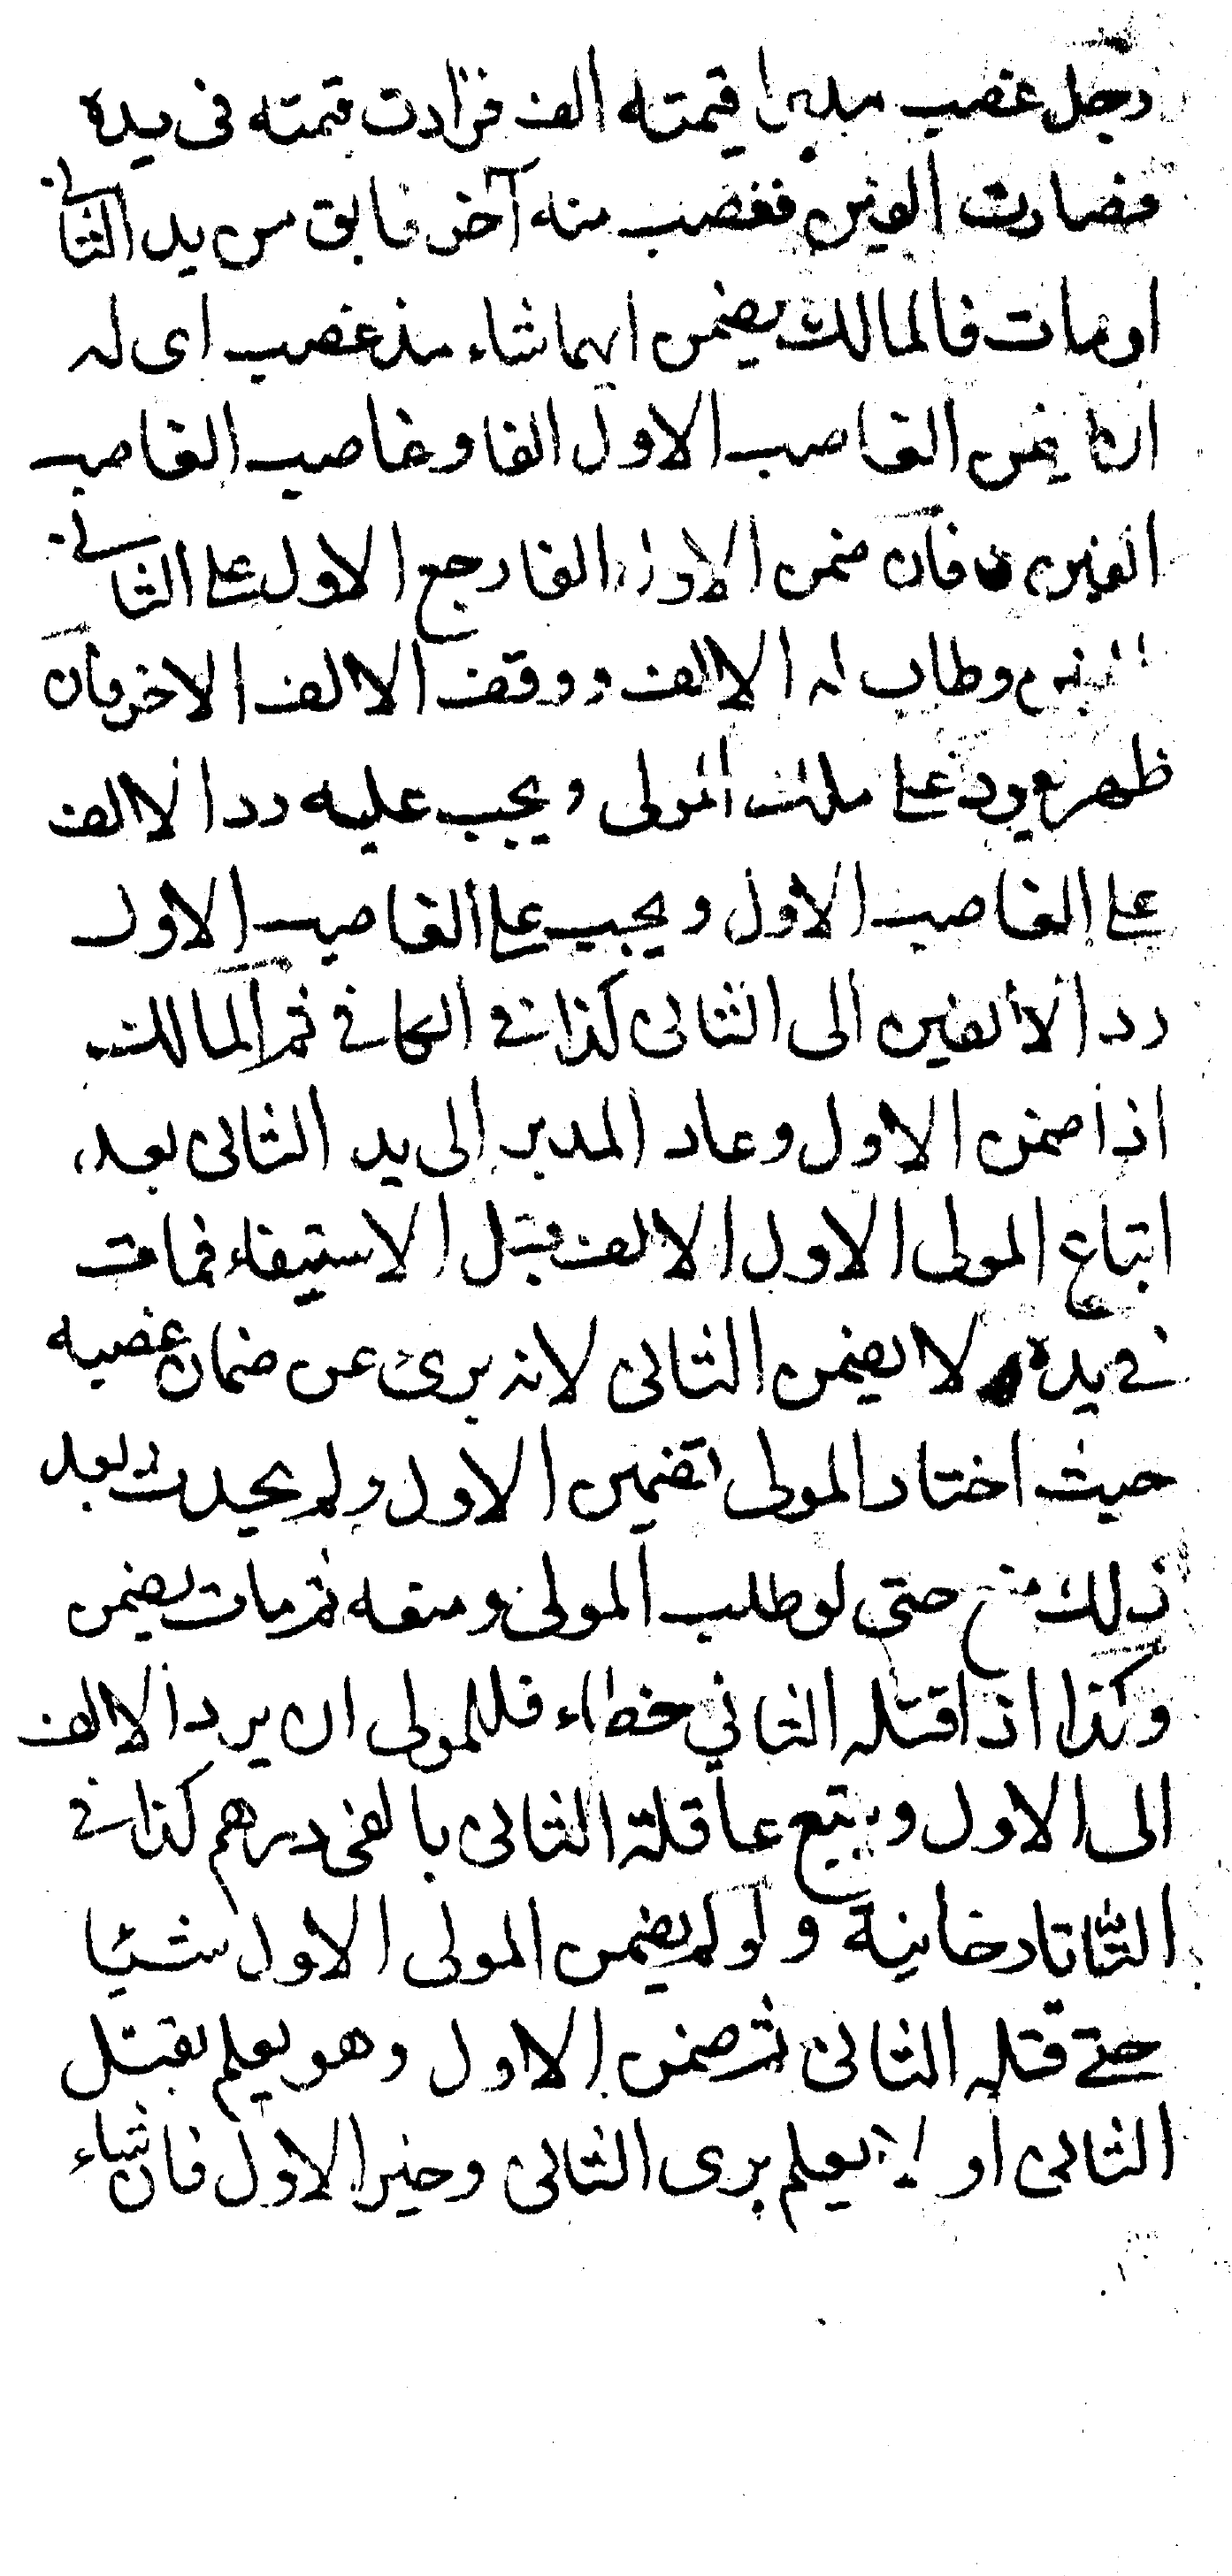 رجل غصب مدبرا قيمته الف فزادت قيمته فى يده
فصارت الفين فغصب منه آخر فابق من يد الثانى
او مات فالمالك يضمن ايهما شاء مذ غصب اى له
ان يضمن الغاصب الاول الفا وغاصب الغاصب
الفين فان ضمن الاول الفا رجع الاول على الثانى
بالفين وطاب له الالف ووقف الالف الاخر فان
ظهر يعود على ملك المولى ويجب عليه رد الالف
على الغاصب الاول ويجب على الغاصب الاول
رد الألفين الى الثانى كذا فى الكافى ثم المالك
اذا ضمن الاول وعاد المدبر الى يد الثانى بعد
اتباع المولى الاول الالف قبل الاستيفاء فمات
فى يده لا يضمن الثانى لانه برئ عن ضمان غصبه
حيث اختار المولى تضمين الاول ولم يحدث بعد
ذلك منع حتى لو طلب المولى ومنعه ثم مات يضمن
وكذا اذا قتله الثاني خطاء فللمولى ان يرد الالف
الى الاول ويتبع عاقلة الثانى بالفى درهم كذا فى
التتاتارخانية ولو لم يضمن المولى الاول شيئا
حتى قتله الثانى ثم ضمن الاول وهو يعلم بقتل
الثانى او لا يعلم برى الثانى وخير الاول فان شاء